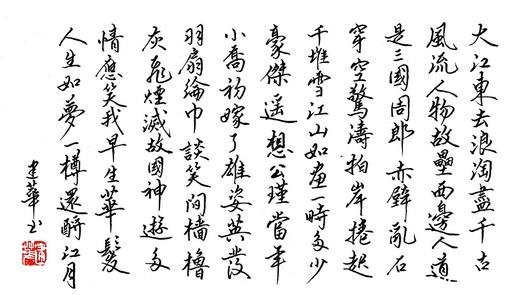 大江東去浪淘盡千古
風流人物故壘西邊人道
是三國周郎赤壁亂石
穿空驚濤拍岸捲起
千堆雪江山如畫一時多少
豪傑遥想公瑾當年
小喬初嫁了雄姿英發
羽扇綸巾談笑間檣櫓
灰飛煙滅故國神遊多
情應笑我早生華髮
人生如夢一樽還酹江月
建華书